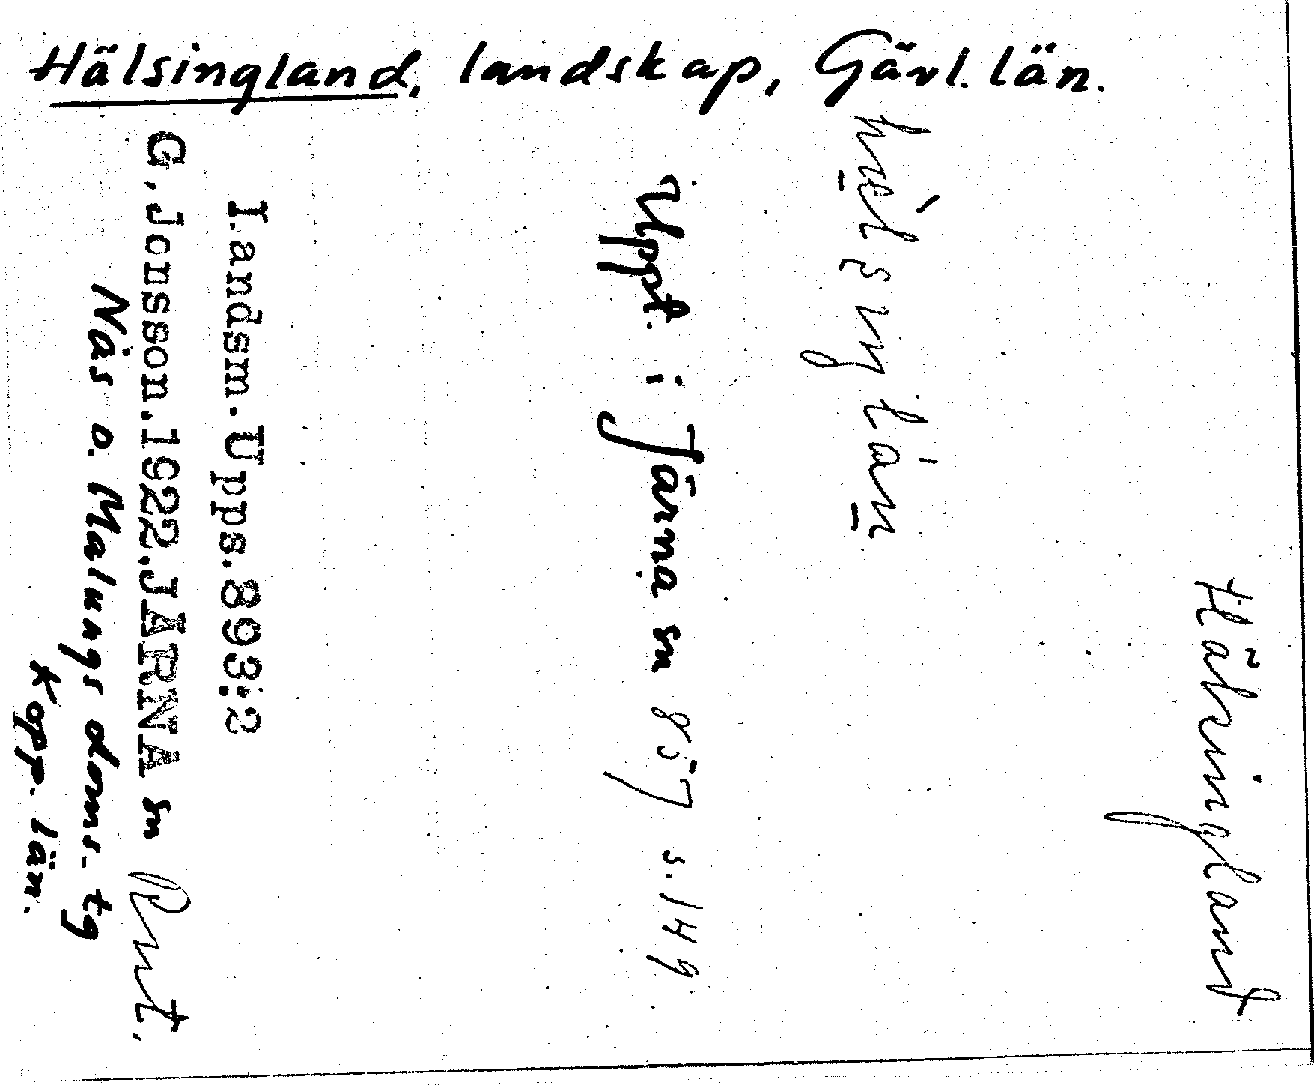 Hälsingland, landskap, Gävl. län.
Hälsingland
hæ̀lsiŋlàn
Uppt. i Järna sn 857 s. 149
Landsm. Upps. 893:2
G. Jonsson. 1922. JÄRNA sn
Nås o. Malungs doms. tg
Kopp. län.